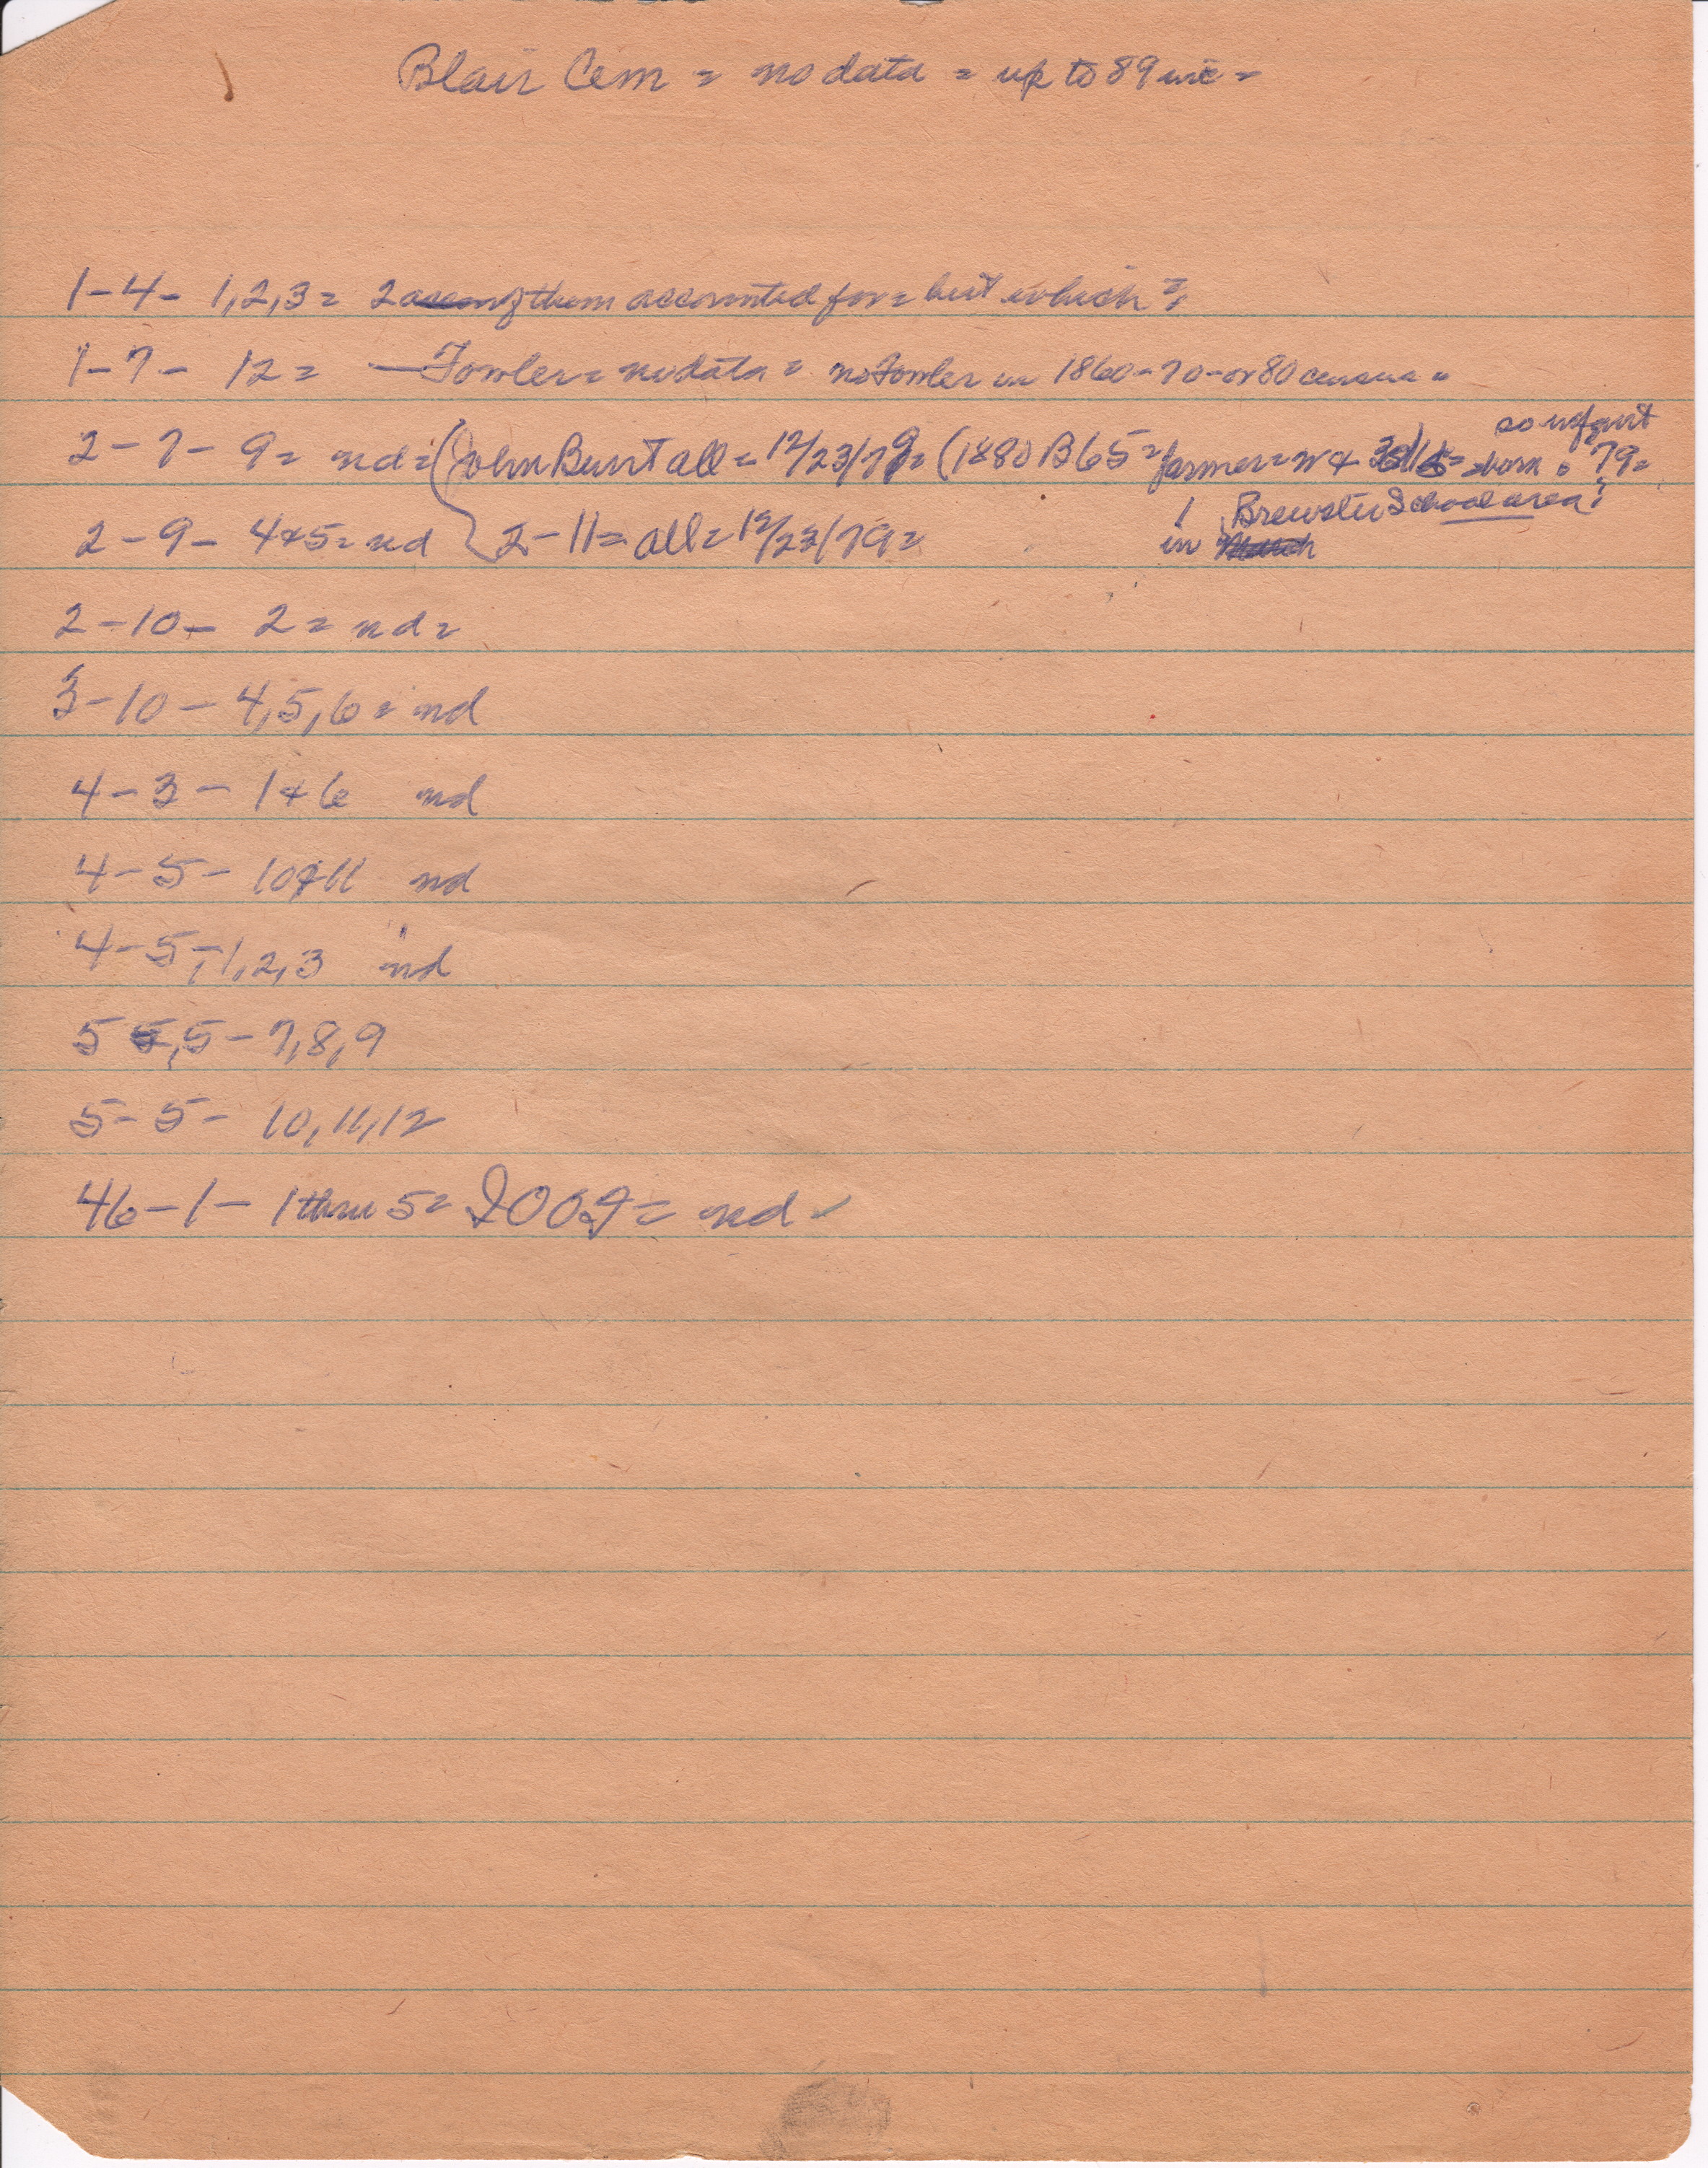 Blair Cem = no data = up to 89 inc =
1-4- 1,2,3 = 2 among them accounted for = but which =
1-7- 12 = Fowler = no data = no Fowler in 1860-70-or 80 census =
so infant
2-7- 9 = nd = (John Burt all = 12/23/79 = (1880 B65 = farmer = w + born 79 =
2-9- 4+5 = nd 2-11 = all = 12/23/79 =
in Brewster School area?
2-10- 2 = nd =
3-10- 4,5,6 = nd
4-3- 1+6 nd
4-5- 10+11 nd
4-5-1,2,3 nd
5 5,5-7,8,9
5-5- 10,11,12
46-1- 1 thru 5 = = nd